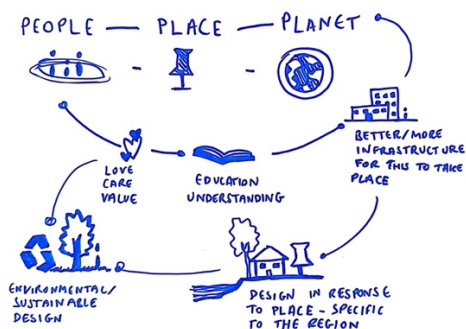 PEOPLE — PLACE — PLANET
LOVE
CARE
VALUE
EDUCATION
UNDERSTANDING
BETTER/MORE
INFRASTRUCTURE
FOR THIS TO TAKE
PLACE
ENVIRONMENTAL/
SUSTAINABLE
DESIGN
DESIGN IN RESPONSE
TO PLACE - SPECIFIC
TO THE REGION